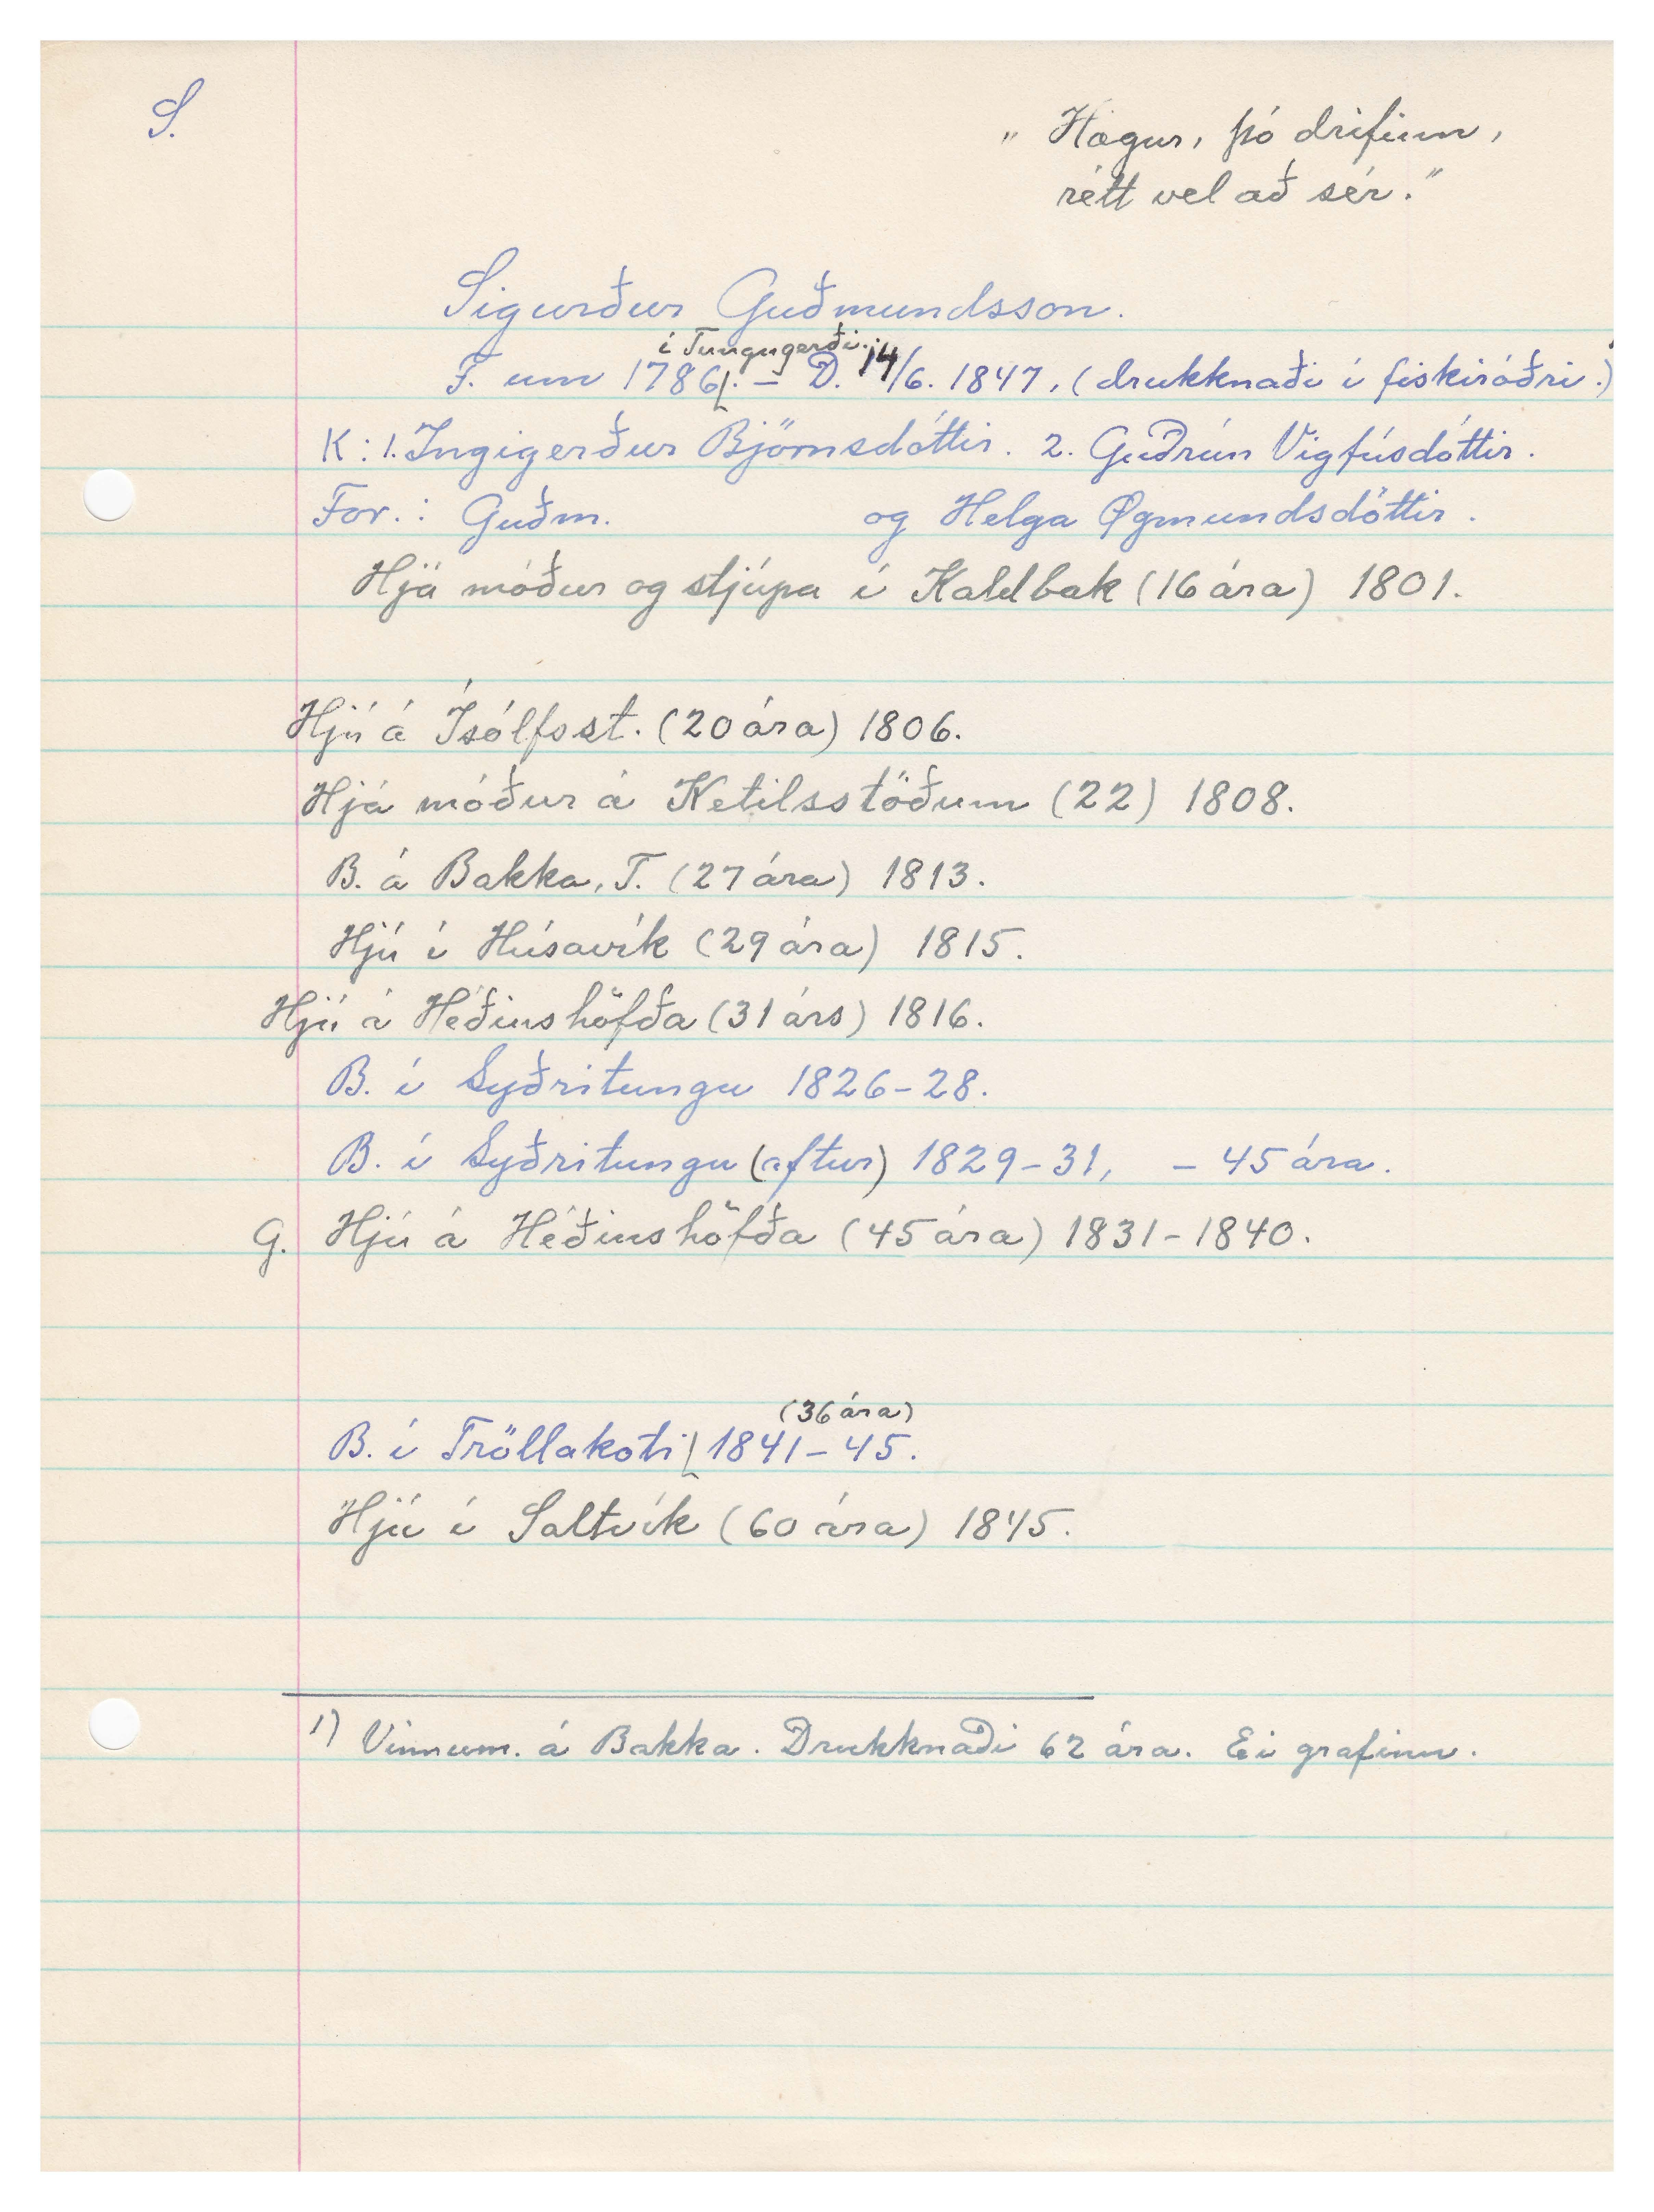 S.
„Hægur, þó drifinn,
rétt vel að sér."
Sigurður Guðmundsson.
í Tungugerði.
F. um 1786. – D. 14/6. 1847, (drukknaði í fiskiróðri.)
K: 1. Ingigerður Björnsdóttir. 2. Guðrún Vigfúsdóttir.
For.: Guðm. og Helga Øgmundsdóttir.
Hjá móður og stjúpa í Kaldbak (16 ára) 1801.
Hjú á Ísólfsst. (20 ára) 1806.
Hjá móður á Ketilsstöðum (22) 1808.
B. á Bakka, T. (27 ára) 1813.
Hjú í Húsavík (29 ára) 1815.
Hjú á Héðinshöfða (31 árs) 1816.
B. í Syðritungu 1826-28.
B. í Syðritungu (aftur) 1829-31, - 45 ára.
G. Hjú á Héðinshöfða (45 ára) 1831-1840.
(36 ára)
B. í Tröllakoti 1841-45.
Hjú í Saltvík (60 ára) 1845.
1) Vinnum. á Bakka. Drukknaði 62 ára. Ei grafinn.